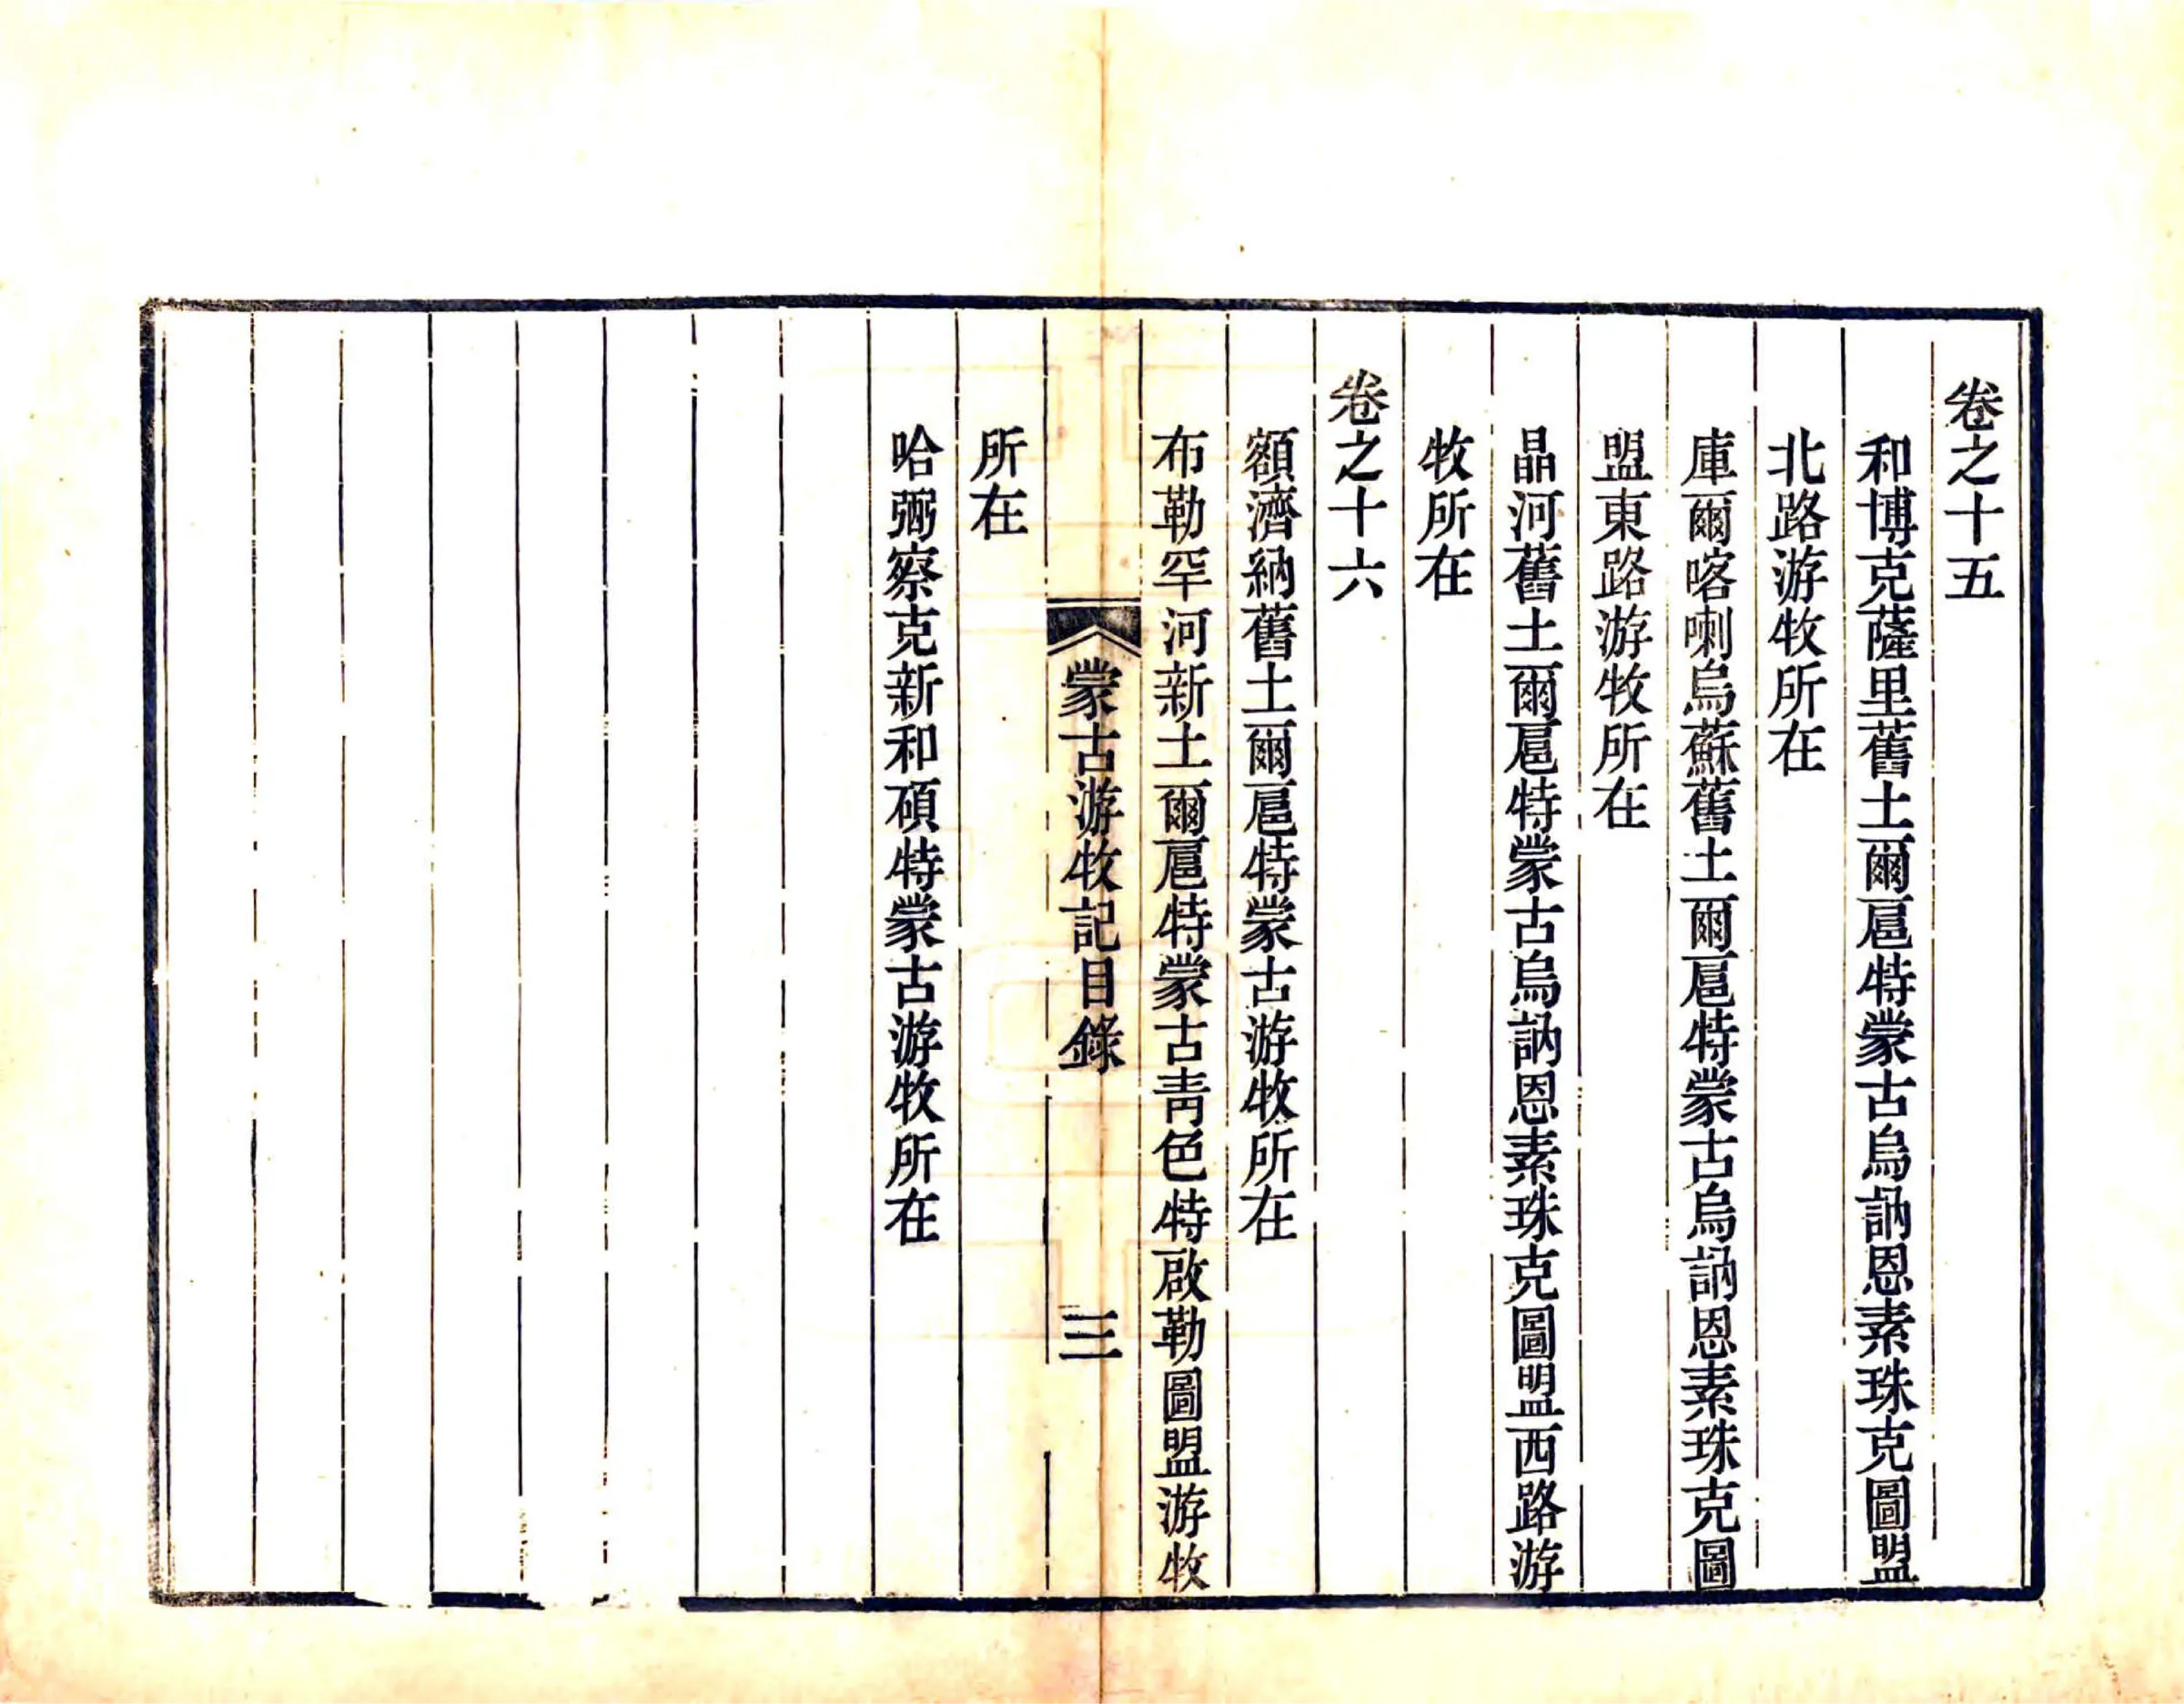 卷之十五
和博克薩里舊土爾扈特蒙古烏訥恩素珠克圖盟
北路游牧所在
庫爾喀喇烏蘇舊土爾扈特蒙古烏訥恩素珠克圖
盟東路游牧所在
晶河舊土爾扈特蒙古烏訥恩素珠克圖盟西路游
牧所在
卷之十六
額濟納舊土爾扈特蒙古游牧所在
布勒罕河新土爾扈特蒙古青色特啟勒圖盟游牧
蒙古游牧記目錄 三
所在
哈弼察克新和碩特蒙古游牧所在